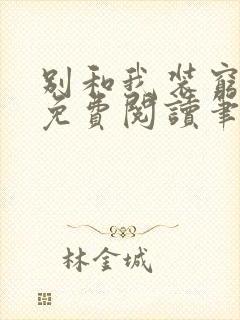 别和我装穷
免費閱讀筆
林金城